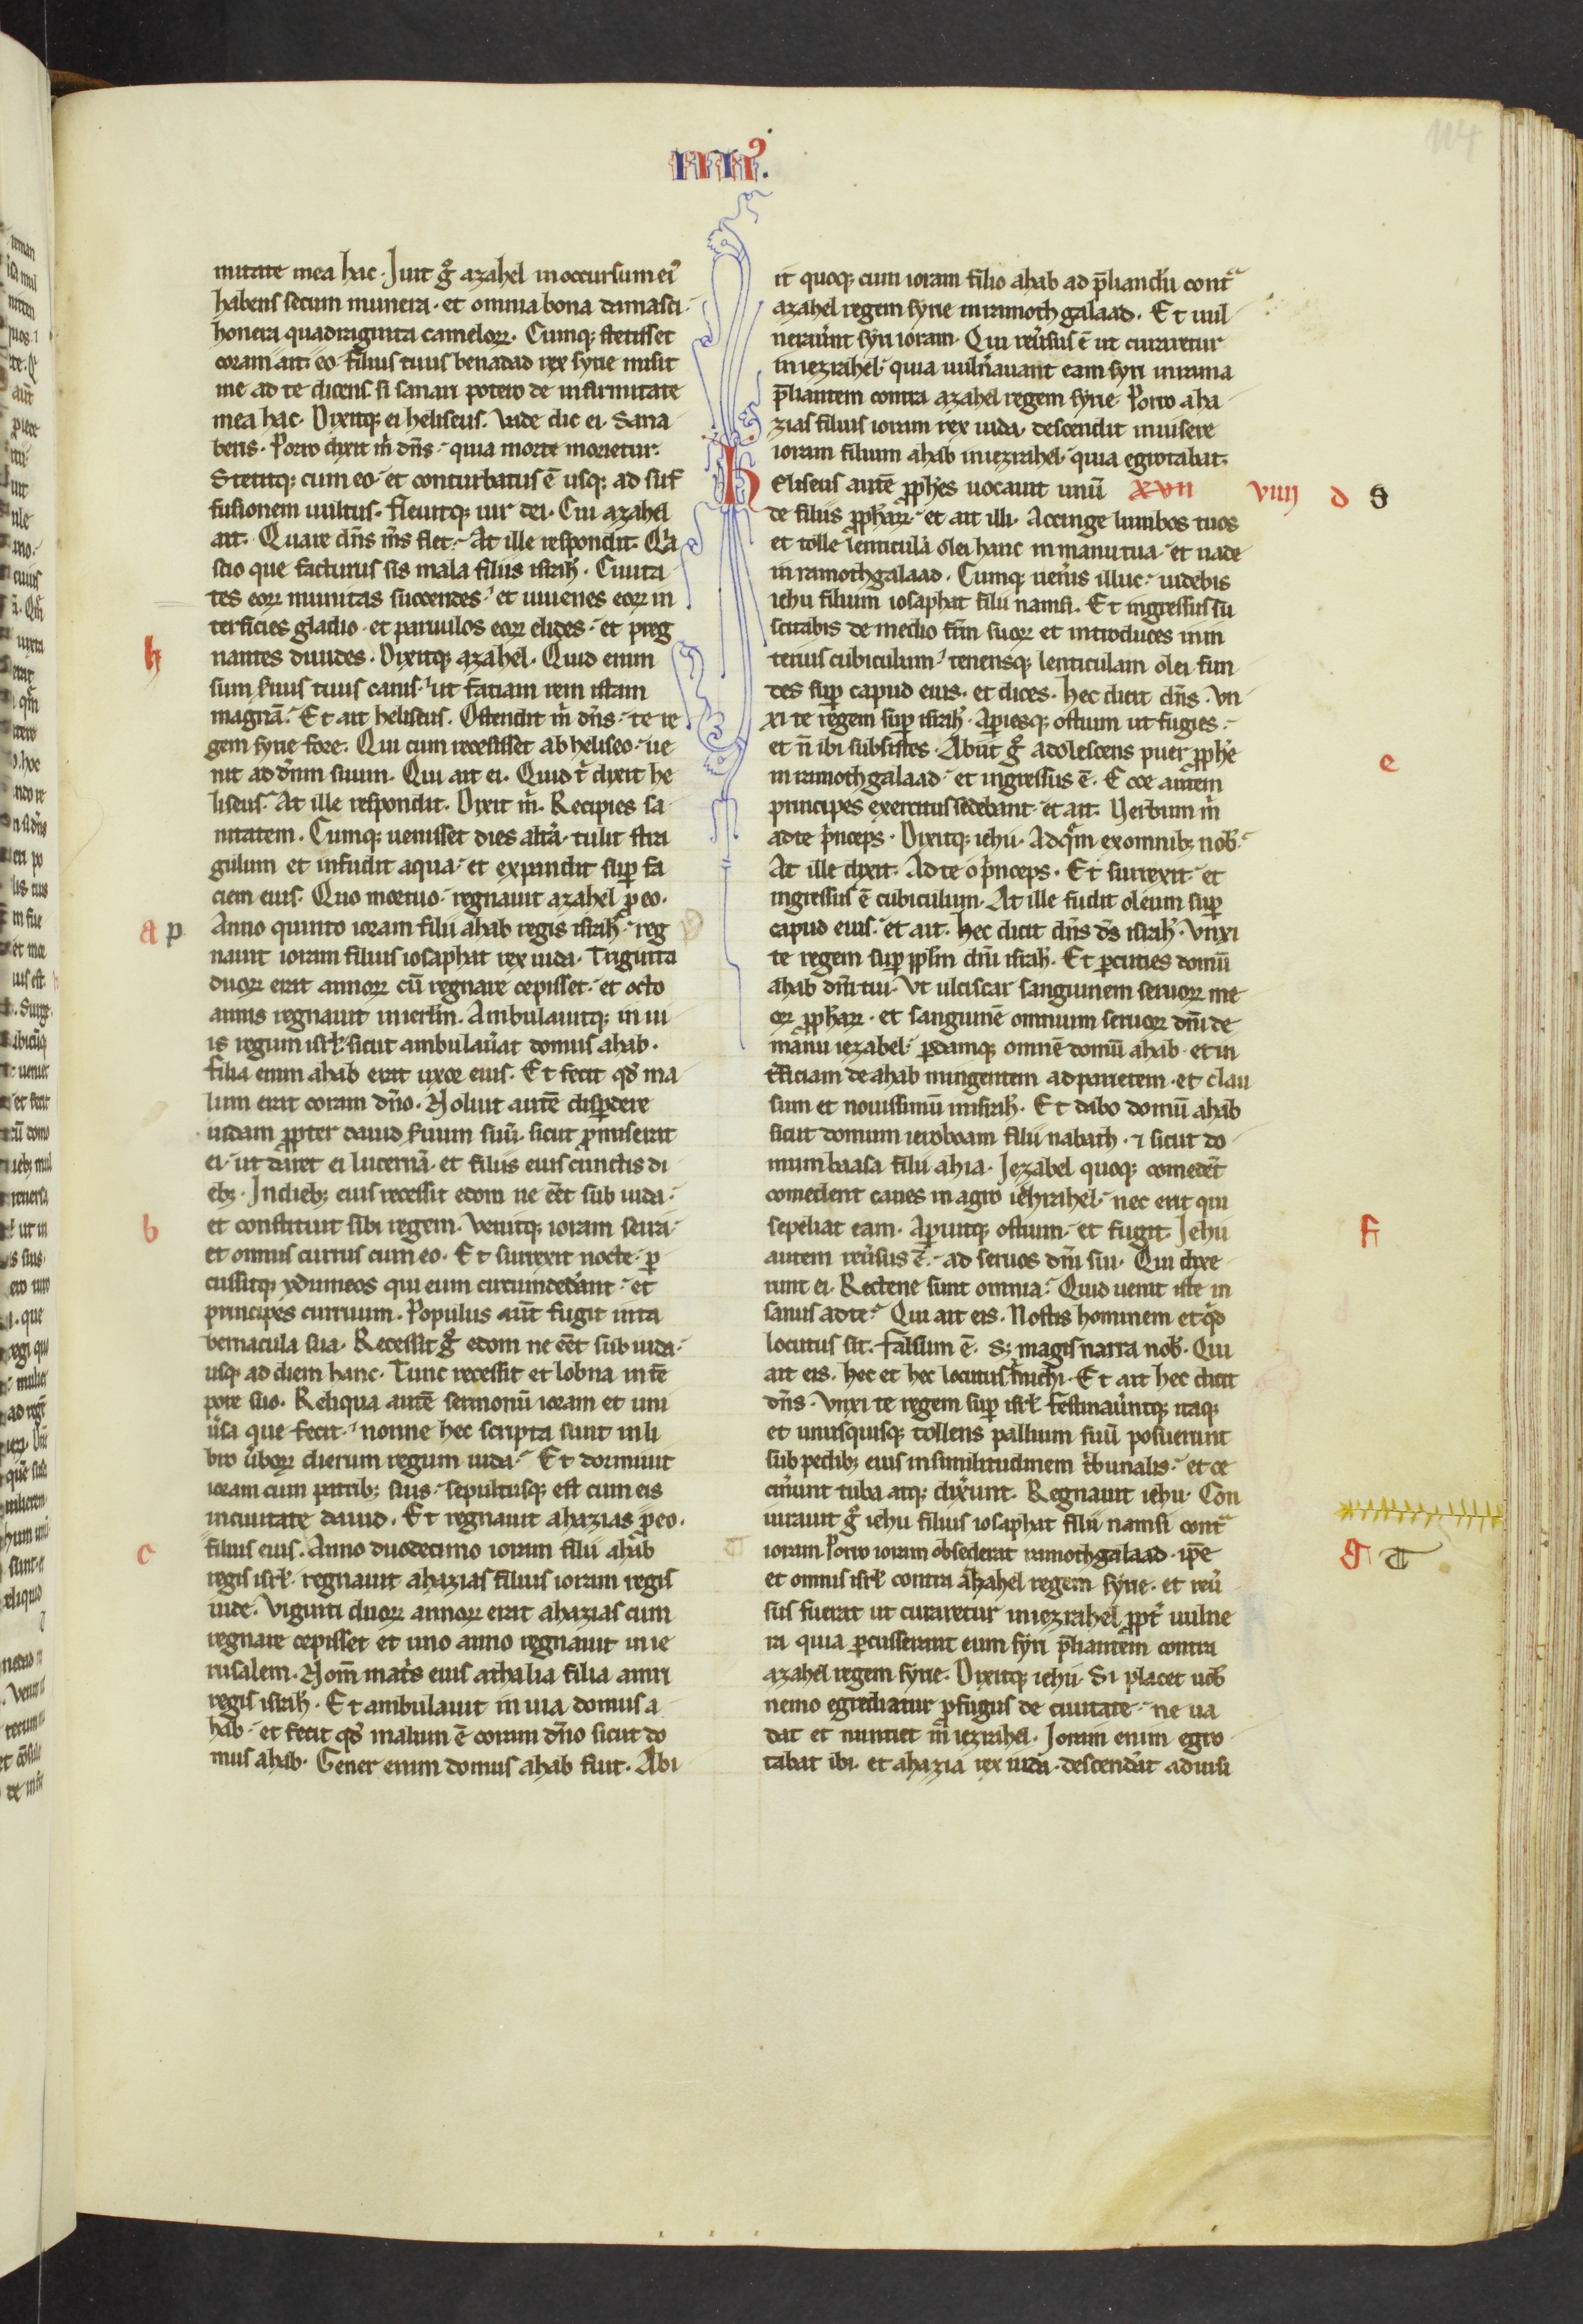 IIIIꝰ.
114
mitate mea hac. Iuit gͦ azahel in occursum eiꝰ
habens secum munera. et omnia bona damasci.
honera quadraginta cameloꝝ. Cumqꝫ stetisset
coram ait eo. filius tuus benadad rex syrie misit
me ad te dicens. si sanari potero de infirmitate
mea hac. Dixitqꝫ ei heliseus. Vade dic ei. Sana
beris. Porro dixit m̄ dn̄s. quia morte morietur.
Stetitqꝫ cum eo. et conturbatus ē usqꝫ ad suf
fusionem uultus. fleuitqꝫ uir dei. Cui azahel
ait. Quare dn̄s m̄s flet. At ille respondit. Qͥa
scio que facturus sis mala filiis isrłi. Ciuita
tes eoꝝ munitas succendes. et iuuenes eoꝝ in
terficies gladio. et paruulos eoꝝ elides. et preg
h
nantes diuides. Dixitqꝫ azahel. Quid enim
sum seruus tuus canis. ut faciam rem istam
magnā. Et ait heliseus. Ostendit m̄ dn̄s. te re
gem syrie fore. Qui cum recessisset ab heliseo. ue
nit ad dn̄m suum. Qui ait ei. Quid t̄ dixit he
liseus. At ille respondit. Dixit m̄. Recipies sa
nitatem. Cumqꝫ uenisset dies altͣa. tulit stra
gulum et infudit aqua. et expandit suꝑ fa
ciem eius. Quo mortuo. regnauit azahel ꝓ eo.
a p
Anno quinto ioram filii ahab regis isrłi. reg
nauit ioram filius iosaphat rex iuda. Triginta
duoꝝ erat annoꝝ cū regnare cepisset. et octo
annis regnauit in ierłm. Ambulauitqꝫ in ui
is regum isrł. sicut ambulaũat domus ahab.
filia enim ahab erat uxor eius. Et fecit qd̄ ma
lum erat coram dn̄o. Noluit autē disꝑdere
iudam ꝓpter dauid seruum suū. sicut ꝓmiserat
ei. ut daret ei lucernā. et filiis eius cunctis di
ebꝫ. In diebꝫ eius recessit edom ne eēt sub iuda.
b
et constituit sibi regem. Venitqꝫ ioram seira.
et omnis currus cum eo. Et surrexit nocte. ꝑ
cussitqꝫ ydumeos qui eum circumdedãnt. et
principes curruum. Populus aūt fugit in ta
bernacula sua. Recessit gͦ edom ne eēt sub iuda.
usqꝫ ad diem hanc. Tunc recessit et lobna in tē
pore suo. Reliqua autē sermonū ioram et uni
ũsa que fecit. nonne hec scripta sunt in li
bro ũboꝝ dierum regum iuda. Et dormiuit
ioram cum patribꝫ suis. sepultusqꝫ est cum eis
in ciuitate dauid. Et regnauit ahazias ꝓ eo.
c
filius eius. Anno duodecimo ioram filii ahab
regis isrł. regnauit ahazias filius ioram regis
iude. Viginti duoꝝ annoꝝ erat ahazias cum
regnare cepisset et uno anno regnauit in ie
rusalem. Nom̄ matͥs eius athalia filia amri
regis isrłi. Et ambulauit in uia domus a
hab. et fecit qd̄ malum ē coram dn̄o sicut do
mus ahab. Gener enim domus ahab fuit. Abi
it quoqꝫ cum ioram filio ahab ad p̄liandū contͣ
azahel regem syrie in ramoth galaad. Et uul
nerauͦnt syri ioram. Qui reũsus ē ut curaretur
in iezrahel. quia uulñauant eam syri in rama
p̄liantem contra azahel regem syrie. Porro aha
zias filius ioram rex iuda. descendit inuisere
ioram filium ahab in iezrahel. quia egrotabat.
Heliseus autē ꝓph̄es uocauit unū XVII VIIII d S
de filiis ꝓph̄aꝝ. et ait illi. Accinge lumbos tuos
et tolle lenticulā olei hanc in manu tua. et uade
in ramoth galaad. Cumqꝫ ueñis illuc. uidebis
iehu filium iosaphat filii namsi. Et ingressus su
scitabis de medio fr̄m suoꝝ et introduces in in
terius cubiculum. tenensqꝫ lenticulam olei. fun
des suꝑ capud eius. et dices. Hec dicit dn̄s. Vn
xi te regem suꝑ isrłi. Aꝑiesqꝫ ostium ut fugies.
et n̄ ibi subsistes. Abiit gͦ adolescens puer ꝓph̄e
e
in ramoth galaad. et ingressus ē. Ecce autem
principes exercitus sedebant. et ait. Verbum m̄
ad te p̄nceps. Dixitqꝫ iehu. Ad qͣm ex omnibꝫ nob̄.
At ille dixit. Ad te o p̄nceps. Et surrexit. et
ingressus ē cubiculum. At ille fudit oleum suꝑ
capud eius. et ait. Hec dicit dn̄s ds̄ isrłi. Vnxi
te regem suꝑ ppłm dn̄i isrłi. Et ꝑcuties domū
ahab dn̄i tui. Vt ulciscar sanguinem seruoꝝ me
oꝝ ꝓph̄aꝝ. et sanguinē omnium seruoꝝ dn̄i de
manu iezabel. ꝑdamqꝫ omnē domū ahab. et in
t̄ficiam de ahab mingentem ad parietem. et clau
sum et nouissimū in isrłi. Et dabo domū ahab
sicut domum ieroboam filii nabath. ⁊ sicut do
mum baasa filii ahia. Iezabel quoqꝫ comedēt
comedent canes in agro iehrahel. nec erit qui
sepeliat eam. Aꝑuitqꝫ ostium. et fugit. Iehu
f
autem reũsus ē. ad seruos dn̄i sui. Qui dixe
runt ei. Rectene sunt omnia. Quid uenit iste in
sanus ad te. Qui ait eis. Nostis hominem et qͥd
locutus sit. Falsum ē. sꝫ magis narra nob̄. Qui
ait eis. hec et hec locutus ē michi. Et ait hec dicit
dn̄s. Vnxi te regem suꝑ isrł. Festinauͦntqꝫ itaqꝫ
et unusquisqꝫ tollens pallium suū posuerunt
sub pedibꝫ eius in similitudinem tͥbunalis. et ce
cin̄unt tuba atqꝫ dix̄unt. Regnauit iehu. Con
iurauit gͦ iehu filius iosaphat filii namsi contͣ
g T
ioram. Porro ioram obsederat ramoth galaad. ip̄e
et omnis isrł contra ahahel regem syrie. et reũ
sus fuerat ut curaretur in iezrahel ꝓpt̄ uulne
ra quia ꝑcusserant eum syri p̄liantem contra
azahel regem syrie. Dixitqꝫ iehu. Si placet uob̄
nemo egrediatur ꝓfugus de ciuitate. ne ua
dat et nuntiet in iezrahel. Ioram enim egro
tabat ibi. et ahazia rex iuda. descendãt ad uisi